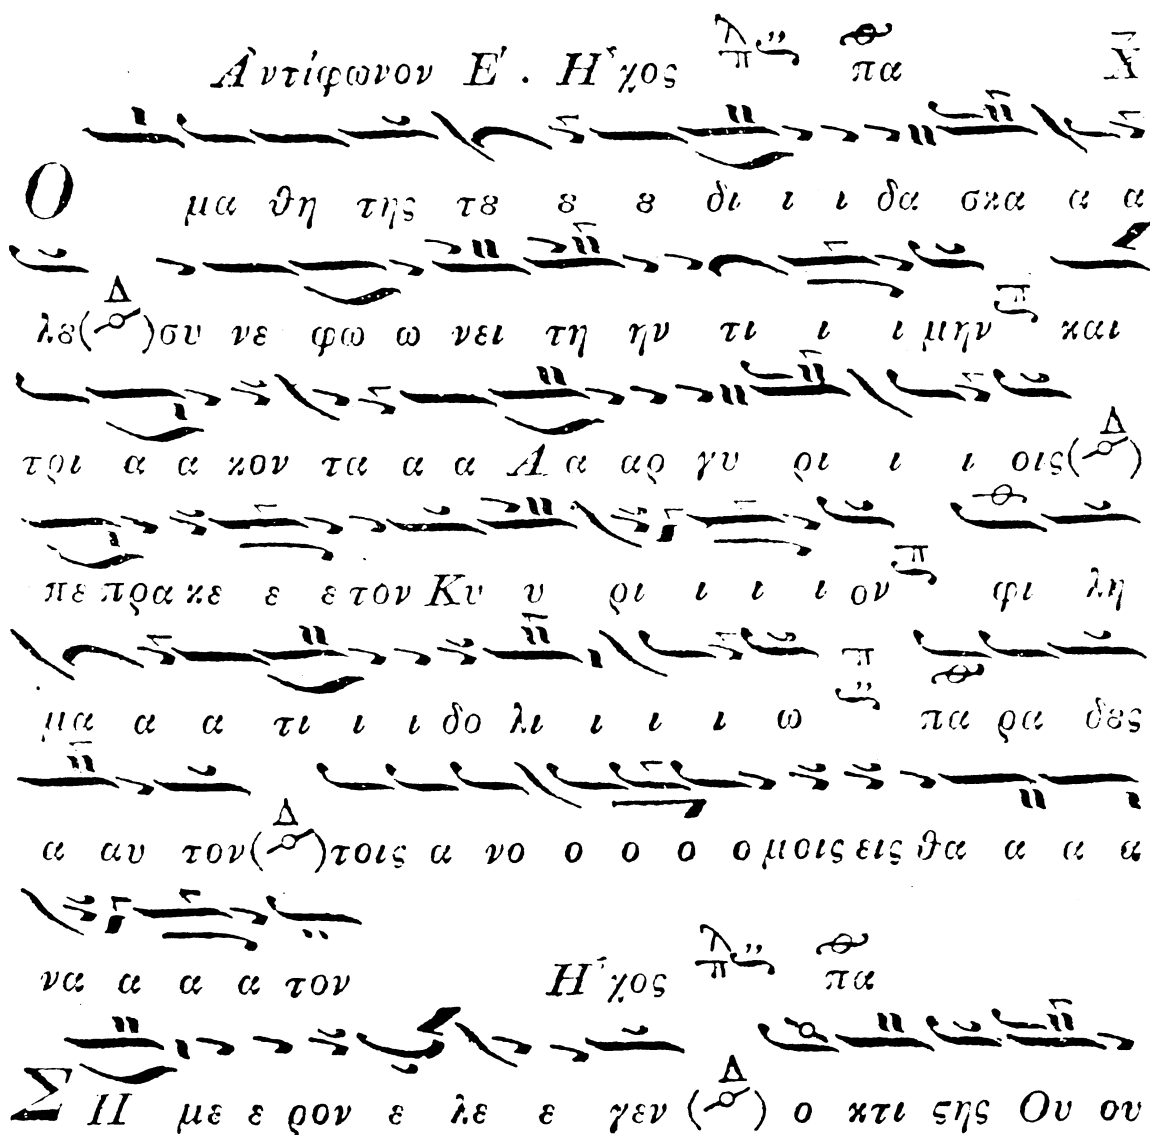 Ἀντίφωνον Ε΄. Ἦχος πα Χ
Ο μα θη της τȣ ȣ ȣ δι ι ι δα σκα α α
λȣ (Δ) συ νε φω ω νει τη ην τι ι ι μην και
τρι α α κον τα α α Α α αρ γυ ρι ι ι οις (Δ)
πε πρα κε ε ε τον Κυ υ ρι ι ι ι ον φι λη
μα α α τι ι ι δο λι ι ι ι ω πα ρα δες
α αυ τον (Δ) τοις α νο ο ο ο ο μοις εις θα α α α
να α α α τον Ἦχος πα
ΣΗ με ε ρον ε λε ε γεν (Δ) ο κτι ϛης Ου ου